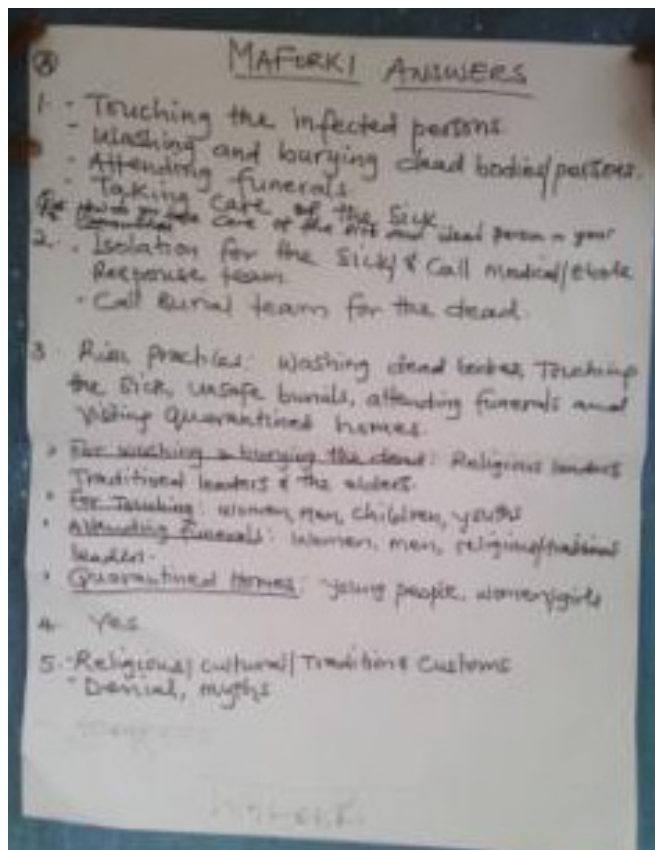 MAFORKI ANSWERS
1. - Touching the infected persons
- Washing and burying dead bodies/persons.
- Attending funerals
- Taking care of the Sick
care of the sick and dead person in your
2. . Isolation for the Sick/& Call medical/Ebola
Response team
- Call Burial team for the dead.
3. Risk Practices: Washing dead bodies, Touching
the Sick, unsafe burials, attending funerals and
Visiting Quarantined homes.
For washing & burying the dead: Religious leaders
Traditional leaders & the elders.
For Touching: women, men, children, youths
Attending funerals: Women, men, religious/traditional
leaders.
Quarantined Homes: young people, women/girls
4. Yes
5. - Religious/ Cultural/ Traditions Customs
- Denial, myths